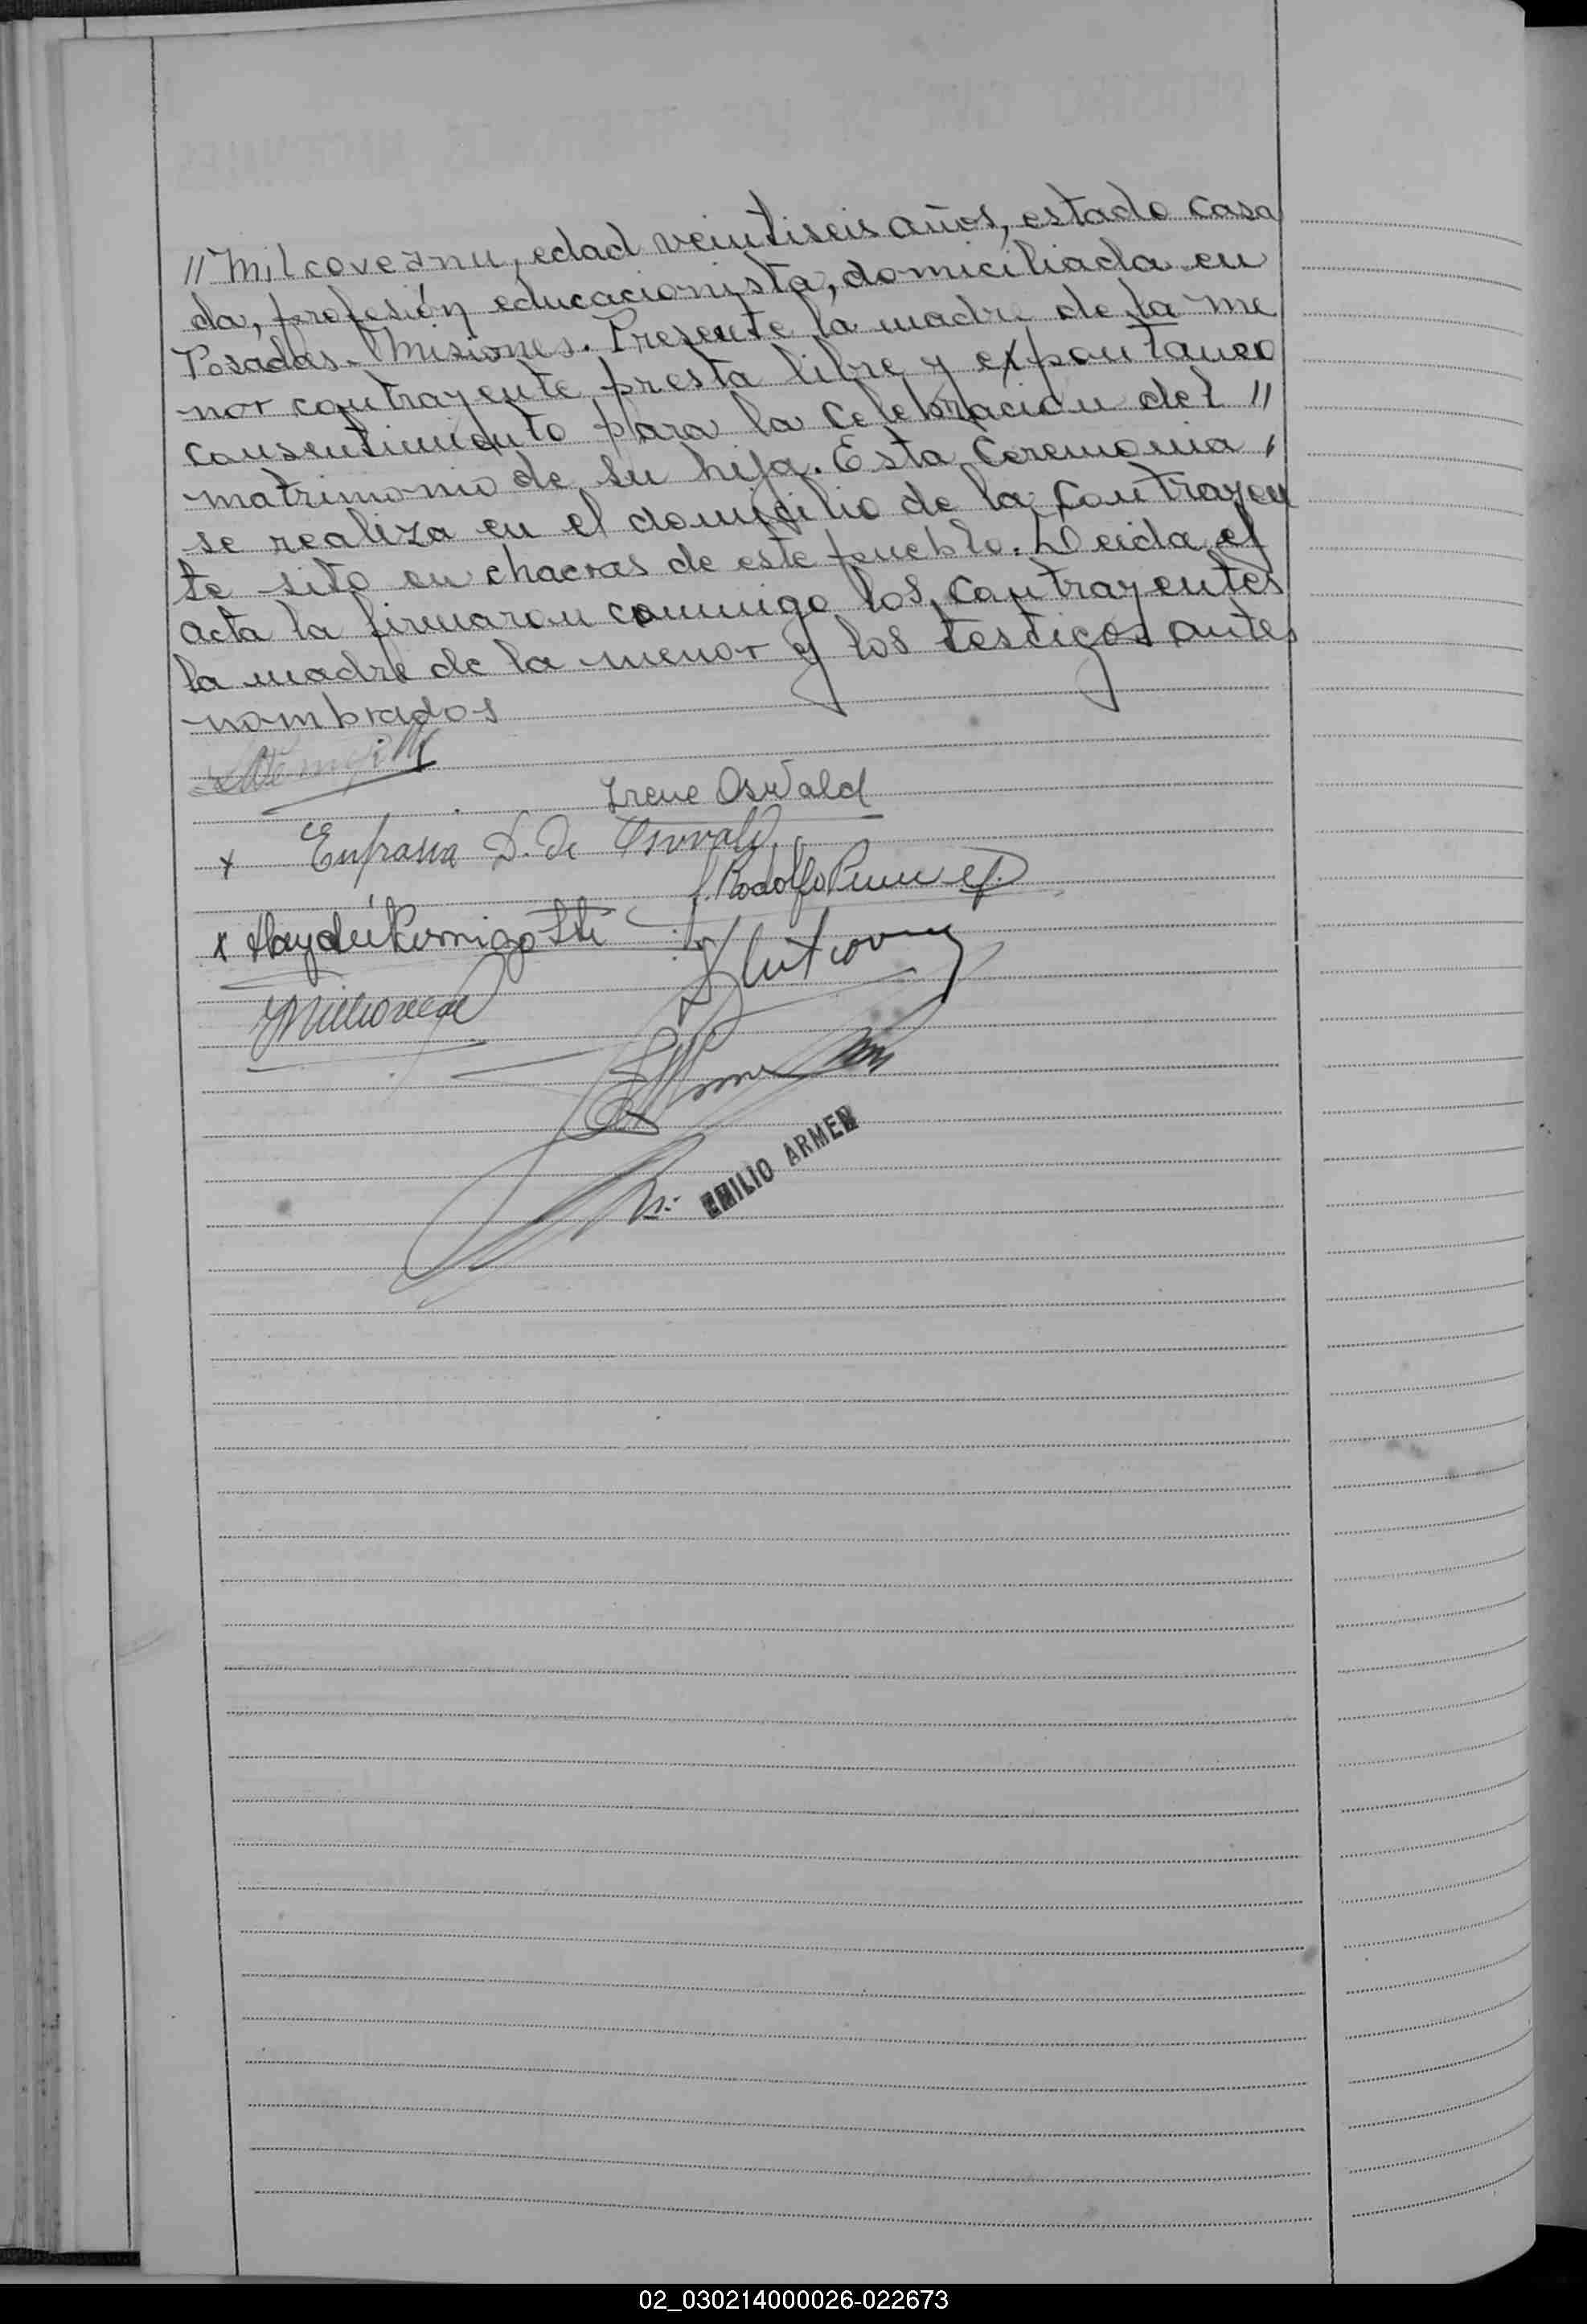 // Milcoveanu, edad veintiseis años, estado casa
da, profesión educacionista, domiciliada en
Posadas - Misiones. Presente la madre de la me
nor contrayente presta libre y expontaneo
consentimiento para la celebración del //
matrimonio de su hija. Esta ceremonia,
se realiza en el domicilio de la contrayen
te sito en chacras de este pueblo. Leida el
acta la firmaron conmigo los contrayentes
la madre de la menor y los testigos antes
nombrados
Irene Oswald
x Eufrasia D. de Oswald
Rodolfo
x Haydée
EMILIO ARMER
02_030214000026-022673